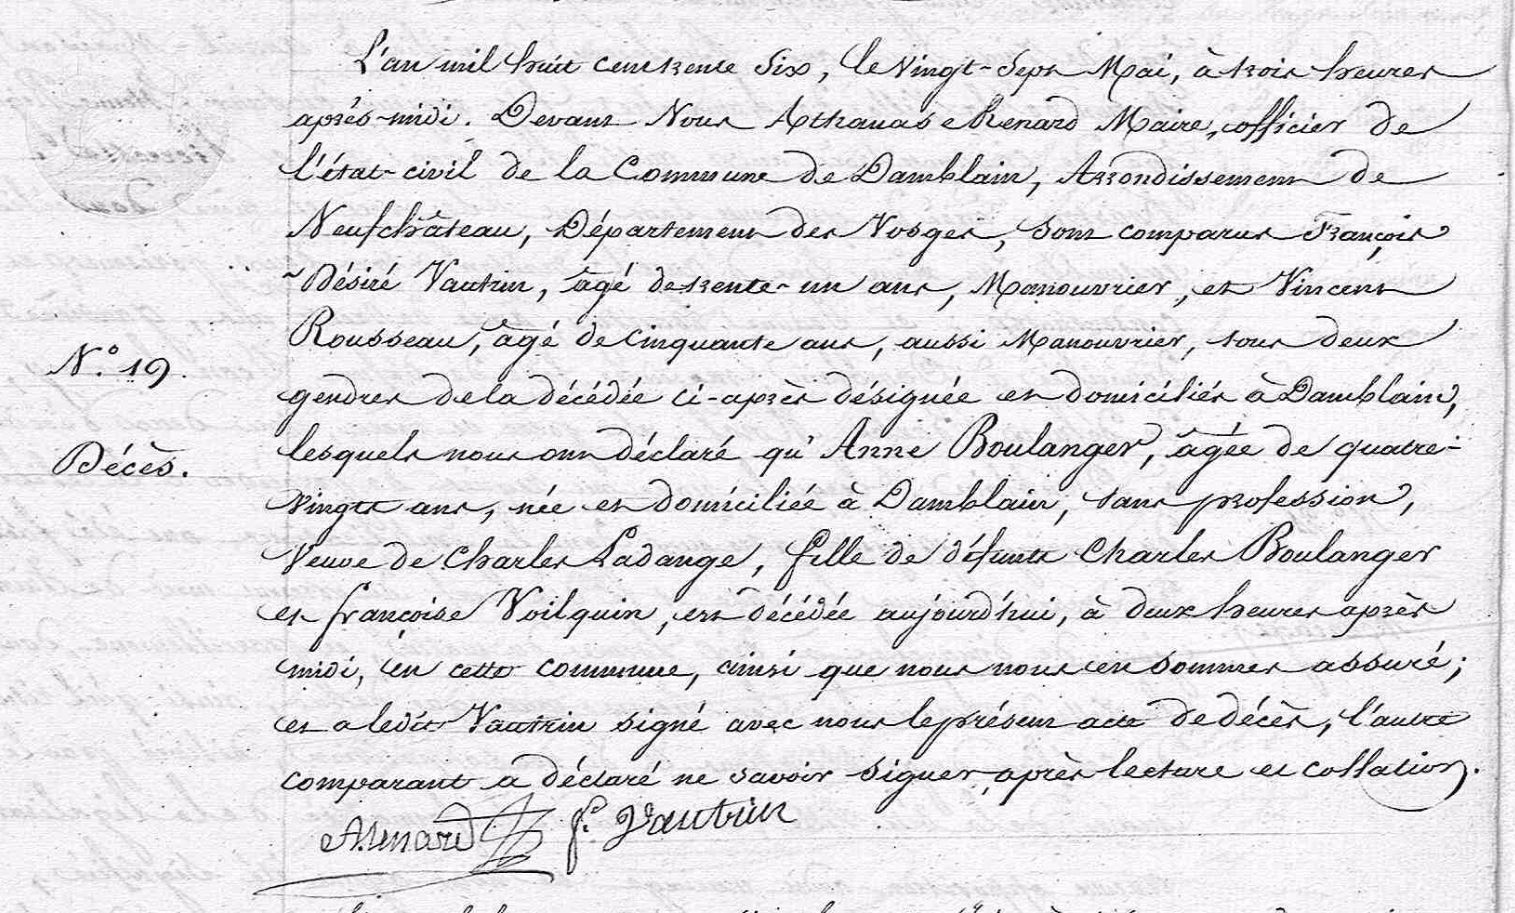 L'an mil huit cent trente Six, le Vingt-Sept Mai, à trois heures
après-midi. Devant Nous Athanase Renard Maire, officier de
l'état-civil de la Commune de Damblain, Arrondissement de
Neufchâteau, Département des Vosges, sont comparus François
Désiré Vautrin, âgé de trente-un ans, Manouvrier, et Vincent
Rousseau, âgé de Cinquante ans, aussi Manouvrier, tous deux
N.° 19.
gendres de la décédée ci-après désignée et domiciliés à Damblain,
lesquels nous ont déclaré qu'Anne Boulanger, âgée de quatre-
Décès.
vingts ans, née et domiciliée à Damblain, sans profession,
Veuve de Charles Ladange, fille de défunts Charles Boulanger
et françoise Voilquin, est décédée aujourd'hui, à deux heures après
midi, en cette commune, ainsi que nous nous en sommes assuré;
et a ledit Vautrin signé avec nous le présent acte de décès, l'autre
comparant a déclaré ne savoir signer, après lecture et collation.
ARenard f.s Vautrin